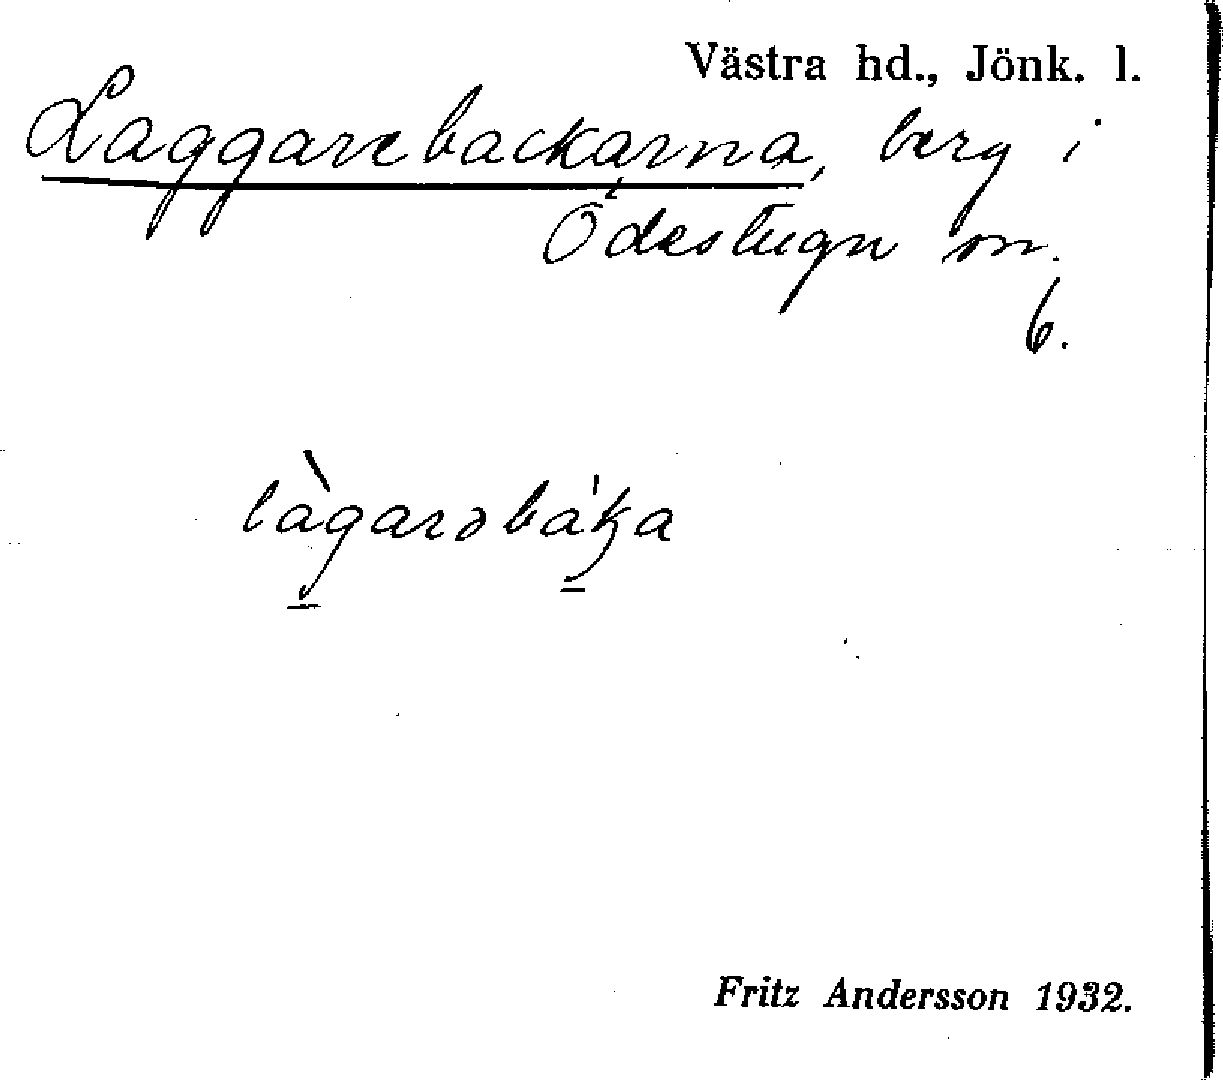 Västra hd., Jönk. l.
Laggarebackarna, berg i
Ödestugu sn.
6.
làgarəbáka
Fritz Andersson 1932.